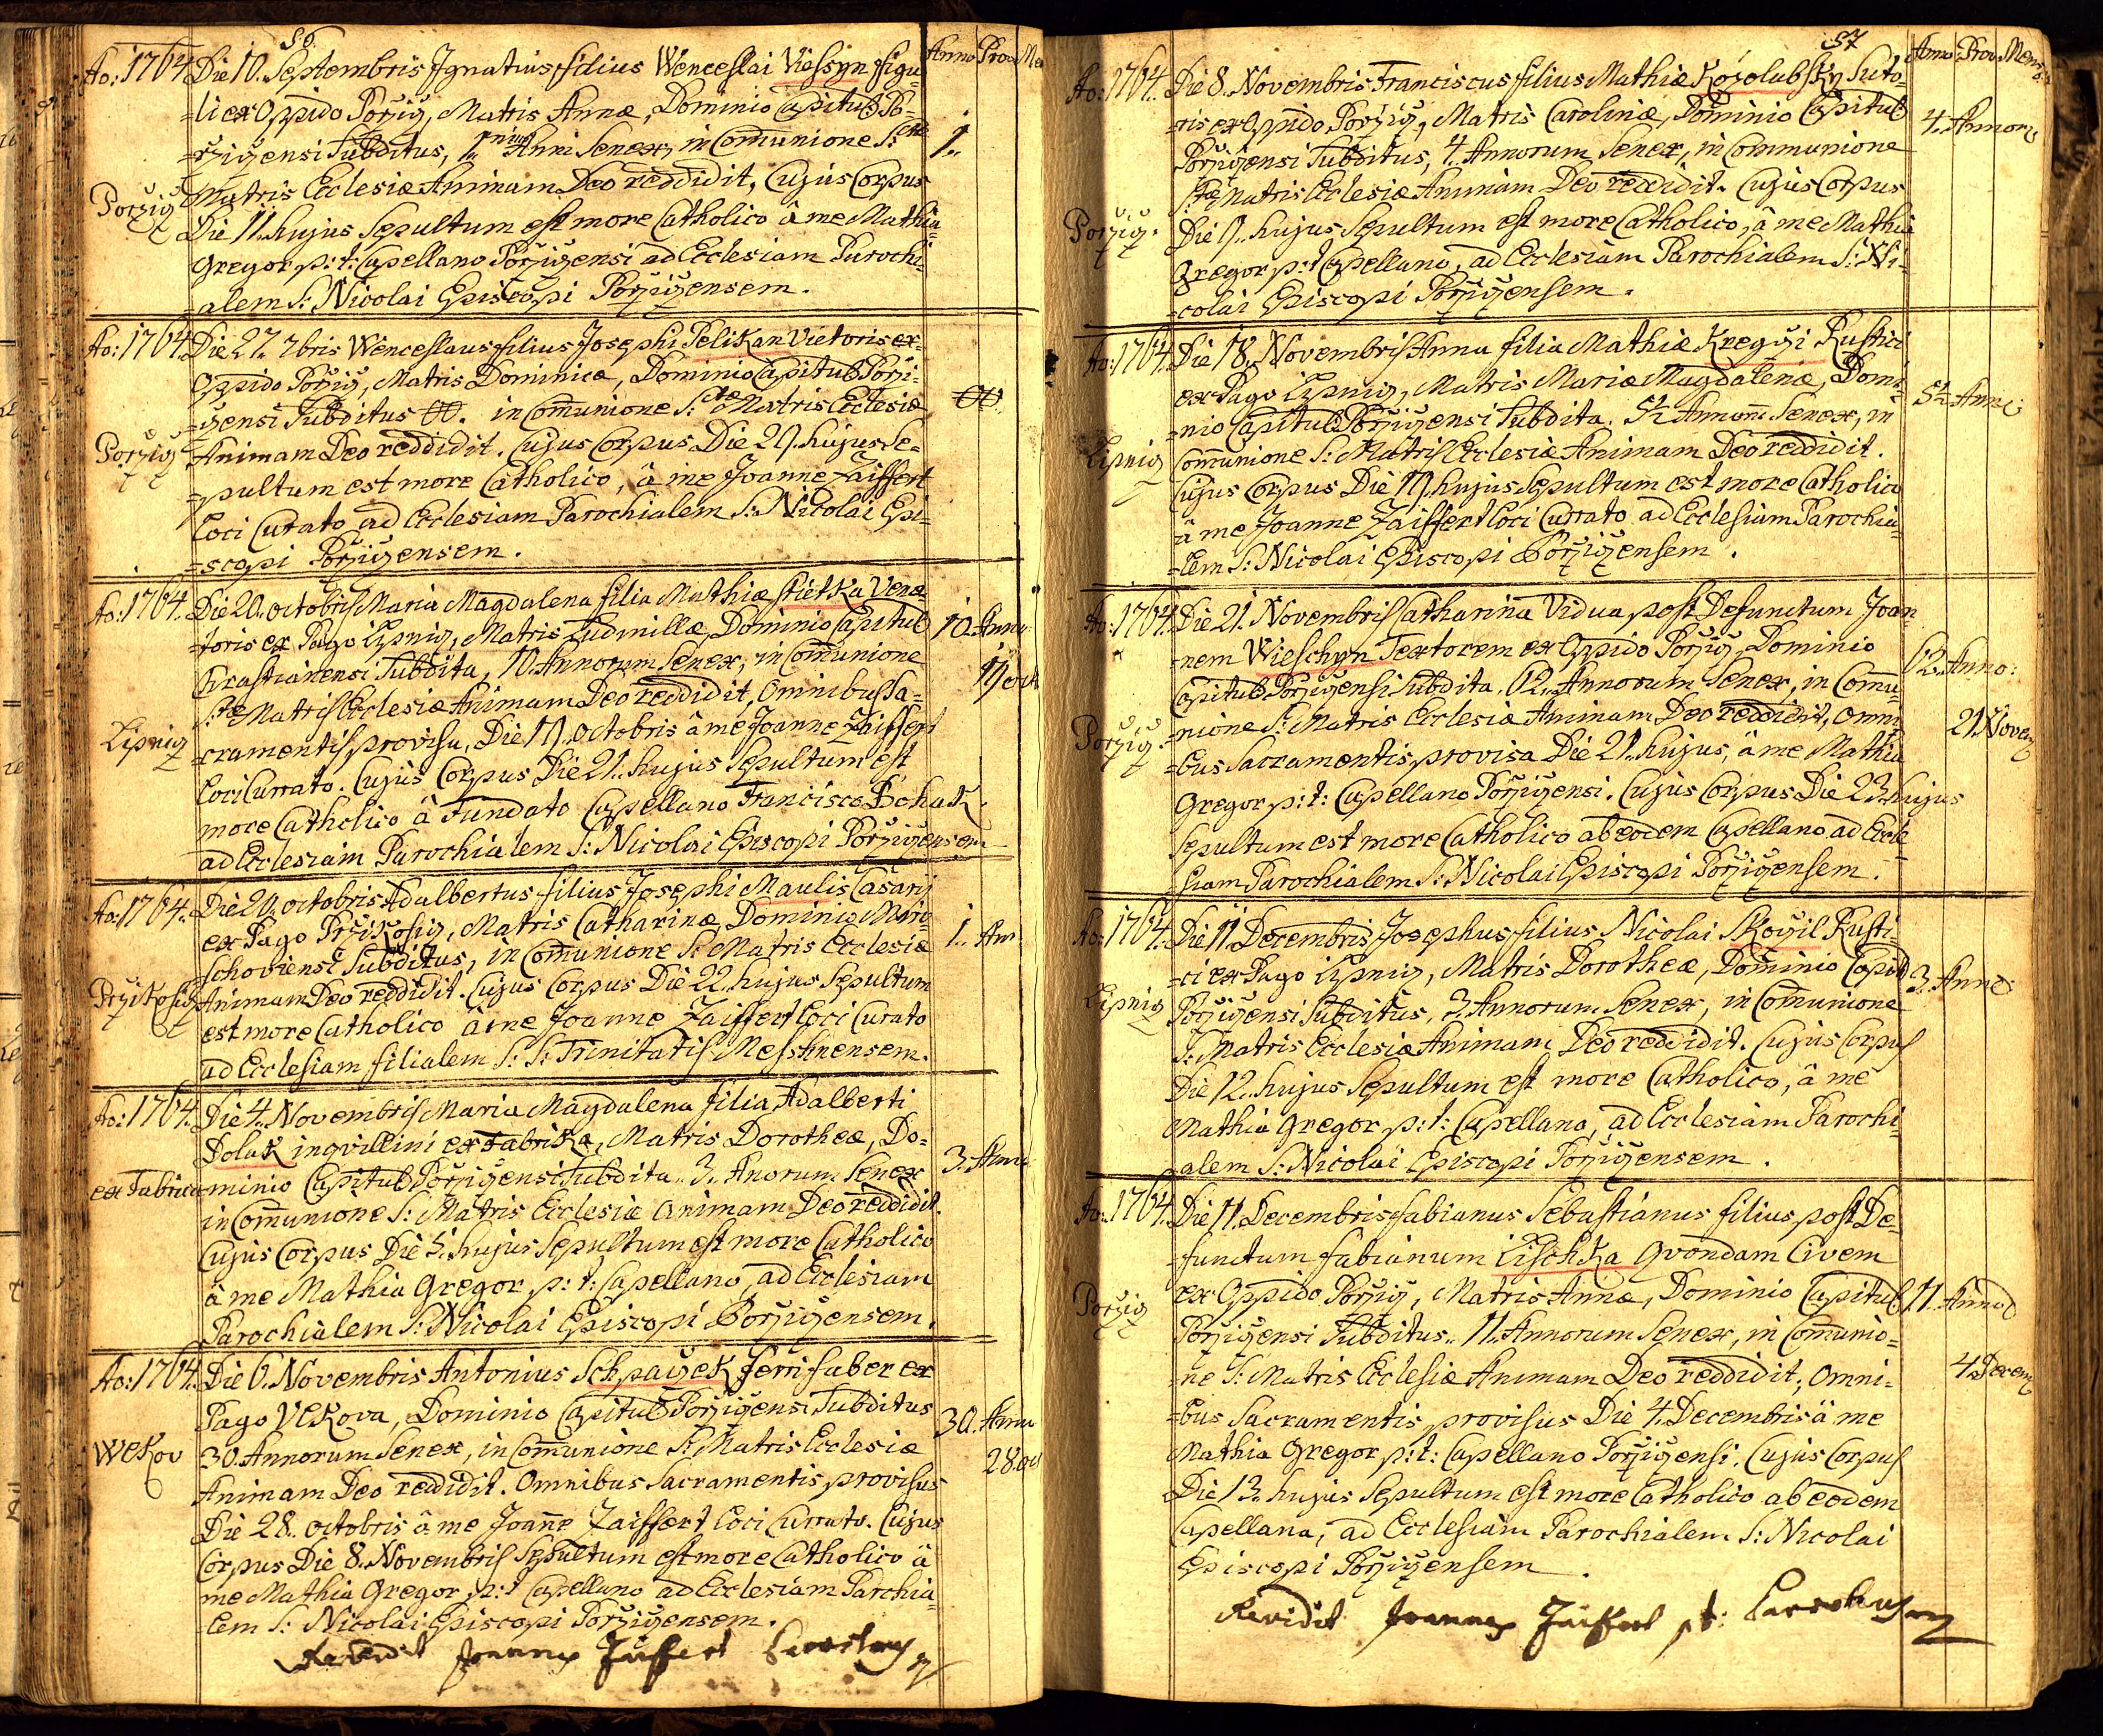 56.
Anno Prov Men
Ao: 1764. Die 10. Septembris Ignatius filius Wenceslai Viessyn figu=
=li ex Oppido Porzicz, Matris Annæ, Dominio Capituli Po=
=rzizensi Subditus, 1. Anni Senex, in Comunione S: 1.
Porzicz Matris Ecclesiæ Animam Deo reddidit, Cujus Corpus
Die 11. hujus Sepultum est more Catholico â me Mathia
Gregor p: t: Capellano Porzizensi ad Ecclesiam Parochi=
=alem S: Nicolai Episcopi Porzizensem.
Ao: 1764. Die 27. 7bris Wenceslaus filius Josephi Pelikan Vietoris ex=
Oppido Porzicz, Matris Dominicæ, Dominio Capituli Porzi=
=zensi Subditus in Comunione S: Matris Ecclesiæ
Porzicz Animam Deo reddidit. Cujus Corpus Die 29. hujus Se=
=pultum est more Catholico, â me Joanne Zaiffert
Loci Curato ad Ecclesiam Parochialem S: Nicolai Epi=
=scopi Porzizensem.
Ao: 1764. Die 20. octobris Maria Magdalena filia Mathiæ Stietka Vena=
=toris ex Pago Lipnicz, Matris Ludmillæ, Dominio Capituli 10. Anno
Subdita, 10. Annorum Senex, in Comunione
S: Matris Ecclesiæ Animam Deo reddidit, Omnibus Sa= 19 oct
Lipnicz =cramentis provisa, Die 19. octobris â me Joanne Zaiffert
Loci Currato. Cujus Corpus Die 21. hujus Sepultum est
more Catholico â Fundato Capellano Francisco Bohatz
ad Ecclesiam Parochialem S: Nicolai Episcopi Porzizensem
Ao: 1764. Die 20. octobris Adalbertus filius Josephi Maulis Casarij
ex Pago Przikosicz, Matris Catharinæ, Dominio Miro= 1. Ann
schoviensi Subditus, in Comunione S: Matris Ecclesiæ
Przikosicz Animam Deo reddidit. Cujus Corpus Die 22. hujus Sepultum
est more Catholico â me Joanne Zaiffert Loci Curato
ad Ecclesiam filialem S: S: Trinitatis Messknensem.
Ao: 1764. Die 4. Novembris Maria Magdalena filia Adalberti
Dolak inqvillini ex Fabrika, Matris Dorotheæ, Do=
ex Fabrica minio Capituli Porzizensi Subdita. 3. Anorum Senex 3. Anno
in Comunione S: Matris Ecclesiæ Animam Deo reddidit.
Cujus Corpus Die 5. hujus Sepultum est more Catholico
â me Mathia Gregor p: t: Capellano, ad Ecclesiam
Parochialem S: Nicolai Episcopi Porzizensem.
Ao: 1764. Die 6. Novembris Antonius Schpaczek ferri faber ex
Pago Vlkova, Dominio Capituli Porzizensi Subditus 30. Anno
Wekov 30. Annorum Senex, in Comunione S: Matris Ecclesiæ
Animam Deo reddidit. Omnibus Sacramentis provisus 28. oct
Die 28. octobris â me Joanne Zaiffert Loci Currato. Cujus
Corpus Die 8. Novembris Sepultum est more Catholico â
me Mathia Gregor p: t Capellano ad Ecclesiam Parchia=
=lem S: Nicolai Episcopi Porzizensem.
Revidit Joannes Zaiffert
57
Anno Prov Mens
Ao: 1764. Die 8. Novembris Franciscus filius Mathiæ Kozolubsky Suto=
=ris ex Oppido Porzicz, Matris Carolinæ, Dominio Capituli 4. Annoru
Porzizensi Subditus, 4. Annorum Senex, in Communione
Matris Ecclesiæ Animam Deo reddidit. Cujus Corpus
Porzicz. Die 9. hujus Sepultum est more Catholico, â me Mathia
Gregor p: t Capellano, ad Ecclesiam Parochialem S: Ni=
=colai Episcopi Porzizensem.
Ao: 1764. Die 18. Novembris Anna filia Mathiæ Kregczi Rustici
ex Pago Lipnicz, Matris Mariæ Magdalenæ, Domi=
=nio Capituli Porzizensi Subdita. 5½ Annorum Senex, in 5½ Anno
Lipnicz Comunione S: Matris Ecclesiæ Animam Deo reddidit.
Cujus Corpus Die 19. hujus Sepultum est more Catholico
â me Joanne Zaiffert Loci Currato ad Ecclesiam Parochia=
=lem S: Nicolai Episcopi Porzizensem.
Ao: 1764. Die 21. Novembris Catharina Vidua post Defunctum Joan=
=nem Wieschyn Textorem ex Oppido Porzicz, Dominio
Capituli Porzizensi Subdita. 62. Annorum Senex, in Comu= 62. Anno:
Porzicz. =nione S: Matris Ecclesiæ Animam Deo reddidit, Omni
=bus Sacramentis provisa Die 21. hujus, â me Mathia 21 Novem
Gregor p: t: Capellano Porzizensi. Cujus Corpus Die 23. hujus
Sepultum est more Catholico ab eodem Capellano ad Eccle=
siam Parochialem S: Nicolai Episcopi Porzizensem.
Ao: 1764. Die 11 Decembris Josephus filius Nicolai Skoczil Rusti=
=ci ex Pago Lipnicz, Matris Dorotheæ, Dominio Capit 3. Anno
Lipnicz Porzizensi Subditus, 3. Annorum Senex, in Comunione
S: Matris Ecclesiæ Animam Deo reddidit. Cujus Corpus
Die 12. hujus Sepultum est more Catholico, â me
Mathia Gregor p: t: Capellano, ad Ecclesiam Parochi=
=alem S: Nicolai Episcopi Porzizensem.
Ao: 1764. Die 11. Decembris Fabianus Sebastianus filius post De=
=functum Fabianum Lischka Qvondam Civem
Porzicz ex Oppido Porzicz, Matris Annæ, Dominio Capituli 11. Anno
Porzizensi Subditus. 11. Annorum Senex, in Comunio=
=ne S: Matris Ecclesiæ Animam Deo reddidit, Omni= 4. Decem
=bus Sacramentis provisus Die 4. Decembris â me
Mathia Gregor p: t: Capellano Porzizensi. Cujus Corpus
Die 13. hujus Sepultum est more Catholico ab eodem
Capellana, ad Ecclesiam Parochialem S: Nicolai
Episcopi Porzizensem.
Revidit Joannes Zaiffert p t: